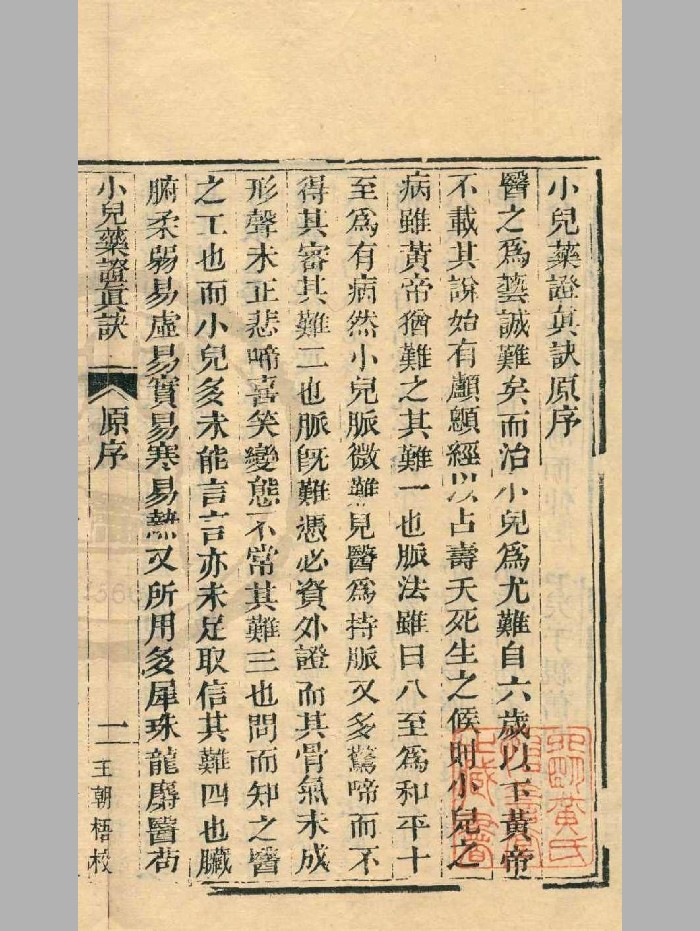 小兒藥證眞訣原序
醫之爲藝誠難矣而治小兒爲尤難自六歲以下黃帝
不載其說始有顱顖經以占壽夭死生之候則小兒之
病雖黃帝猶難之其難一也脈法雖曰八至爲和平十
至爲有病然小兒脈微難見醫爲持脈又多驚啼而不
得其審其難二也脈旣難憑必資外證而其骨氣未成
形聲未正悲啼喜笑變態不常其難三也問而知之醫
之工也而小兒多未能言言亦未足取信其難四也臟
腑柔弱易虛易實易寒易熱又所用多犀珠龍麝醫茍
小兒藥證眞訣
原序
一
王朝梧校